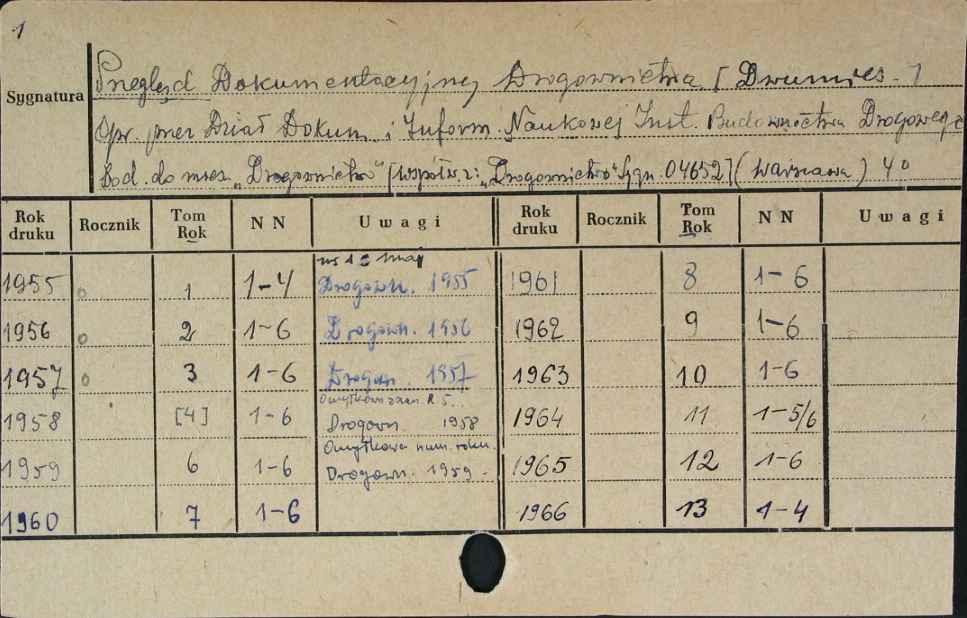 1
Sygnatura
Przegląd Dokumentacyjny Drogownictwa [Dwumies.]
Opr. przez Dział Dokum. i Inform. Naukowej Inst. Budownictwa Drogowego
Dod. do mies. „Drogownictwo" [Współw. z: „Drogownictwo" Sygn. 04652] (Warszawa) 4°
Rok druku Rocznik Tom Rok N N Uwagi Rok druku Rocznik Tom Rok N N Uwagi
1955 o 1 1-4 maj Drogown. 1955 1961 8 1-6
1956 o 2 1-6 Drogown. 1956 1962 9 1-6
1957 o 3 1-6 Drogown. 1957 1963 10 1-6
1958 [4] 1-6 R 5. Drogown. 1958 1964 11 1-5/6
1959 6 1-6 Omyłkowa num. roku. Drogown. 1959. 1965 12 1-6
1960 7 1-6 1966 13 1-4